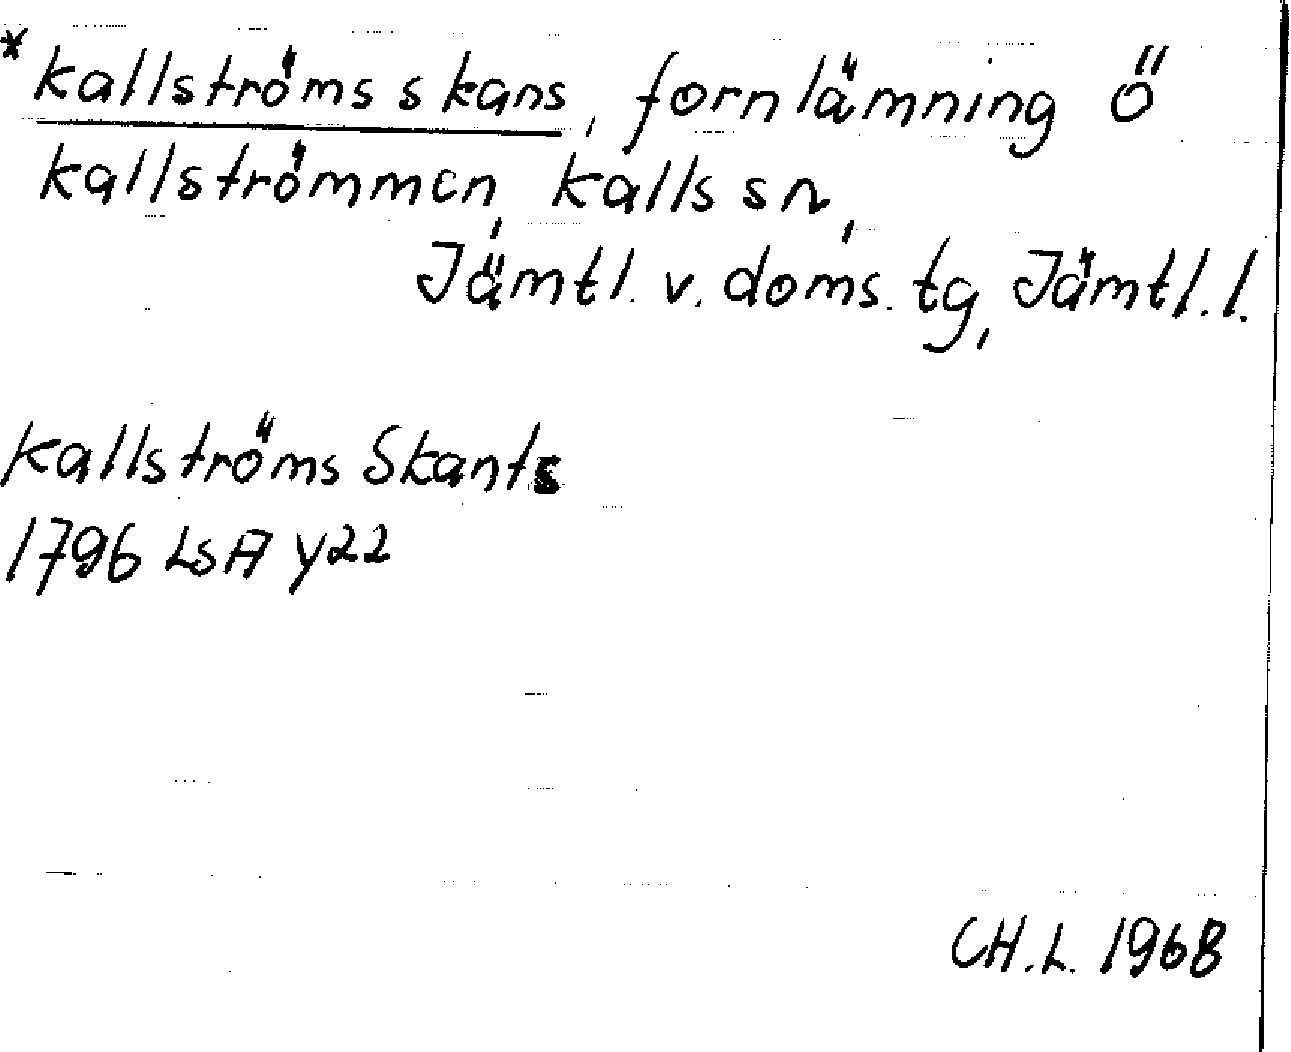 * Kallströms skans, fornlämning Ö
Kallströmmen, Kalls sn,
Jämtl. v. doms. tg, Jämtl. l.
Kallströms Skants
1796 LSA Y22
CH.L. 1968